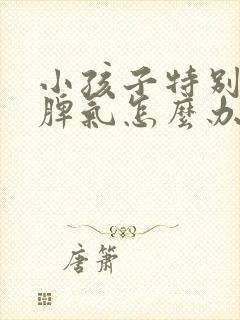 小孩子特别
脾氣怎麼办
唐箫